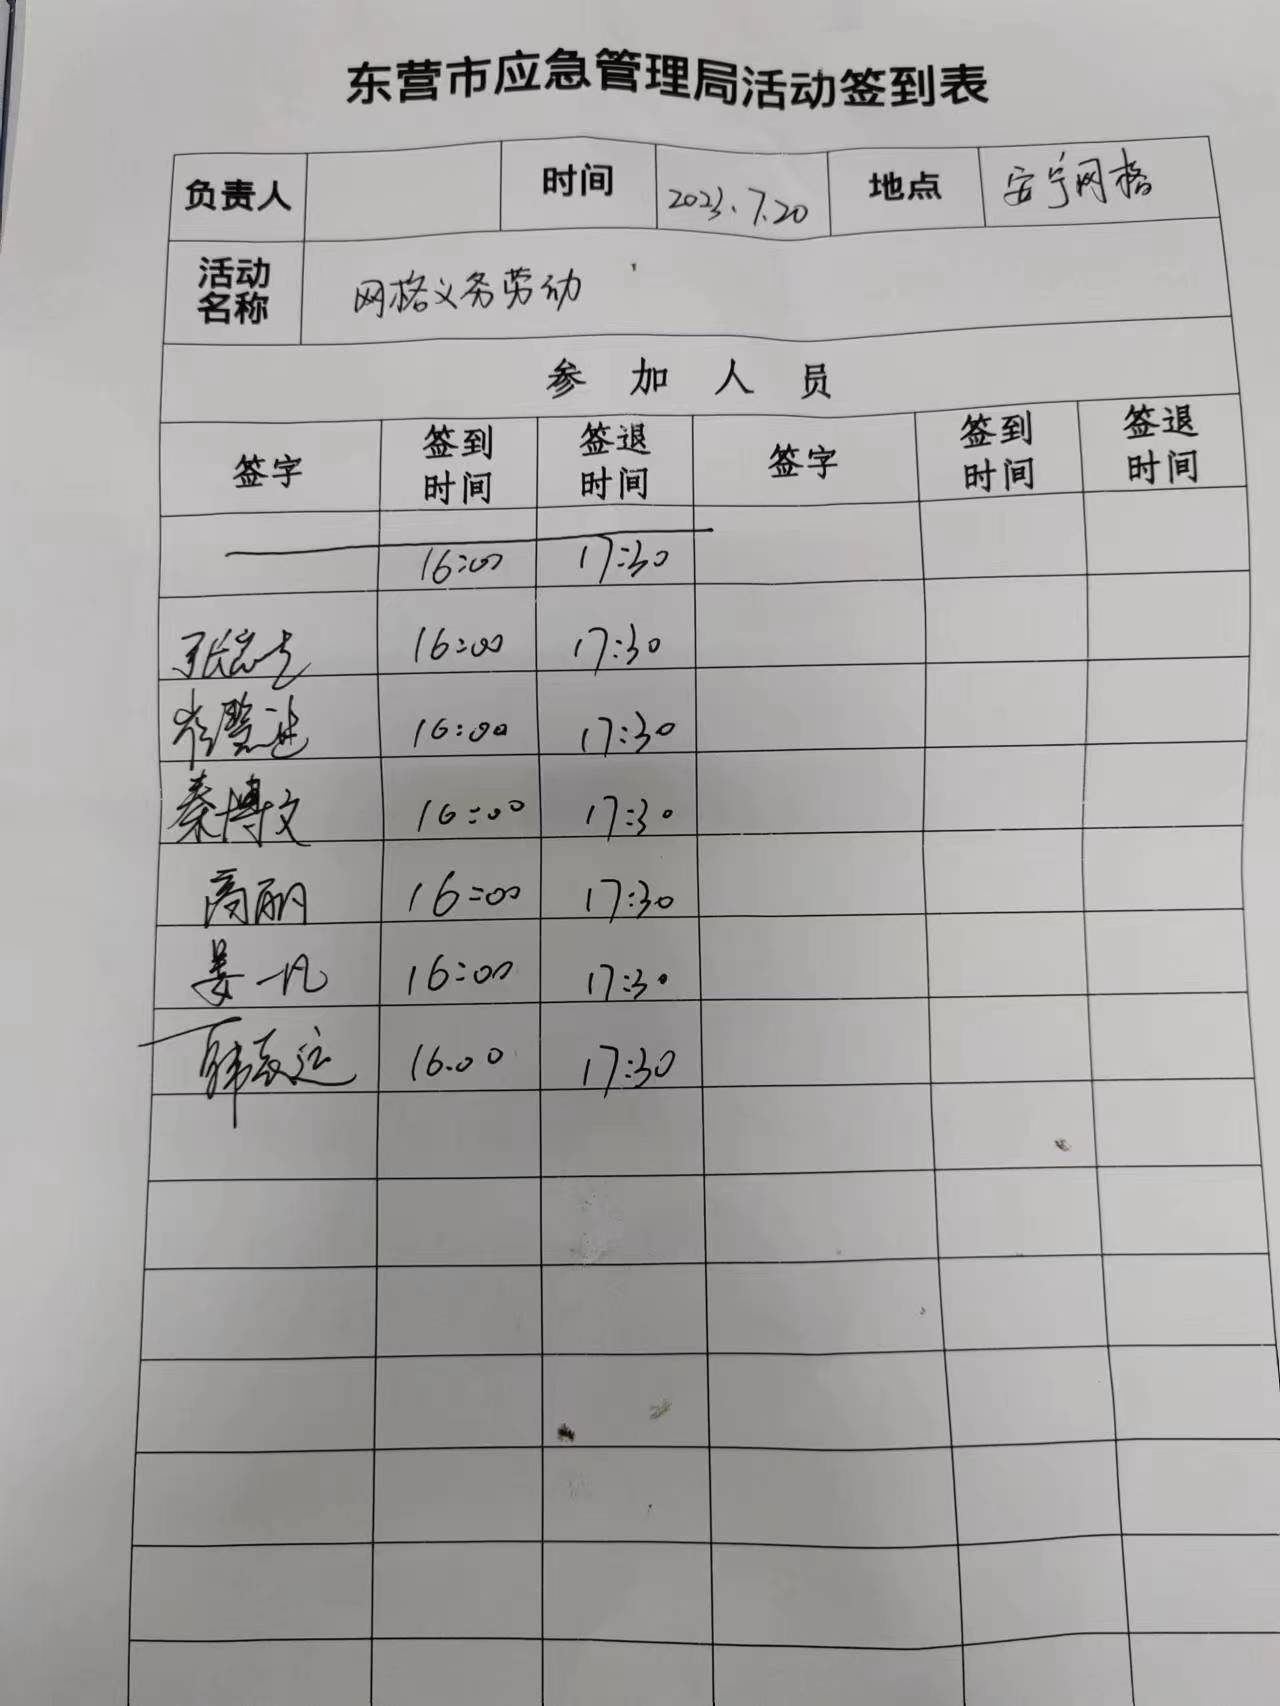 东营市应急管理局活动签到表
负责人 时间 2023.7.20 地点 安宁网格
活动名称 网格义务劳动
参加人员
签字 签到时间 签退时间 签字 签到时间 签退时间
16:00 17:30
16:00 17:30
16:00 17:30
秦博文 16:00 17:30
高丽 16:00 17:30
姜一凡 16:00 17:30
16.00 17:30